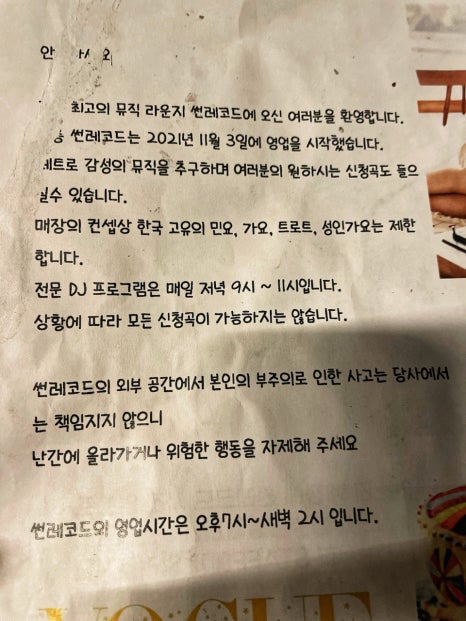 최고의 뮤직 라운지 썬레코드에 오신 여러분을 환영합니다.
썬레코드는 2021년 11월 3일에 영업을 시작했습니다.
감성의 뮤직을 추구하며 여러분의 원하시는 신청곡도 들으
실수 있습니다.
매장의 컨셉상 한국 고유의 민요, 가요, 트로트, 성인가요는 제한
합니다.
전문 DJ 프로그램은 매일 저녁 9시 ~ 11시입니다.
상황에 따라 모든 신청곡이 가능하지는 않습니다.
썬레코드의 외부 공간에서 본인의 부주의로 인한 사고는 당사에서
는 책임지지 않으니
난간에 올라가거나 위험한 행동을 자제해 주세요
썬레코드의 영업시간은 오후7시~새벽 2시 입니다.
VOGUE